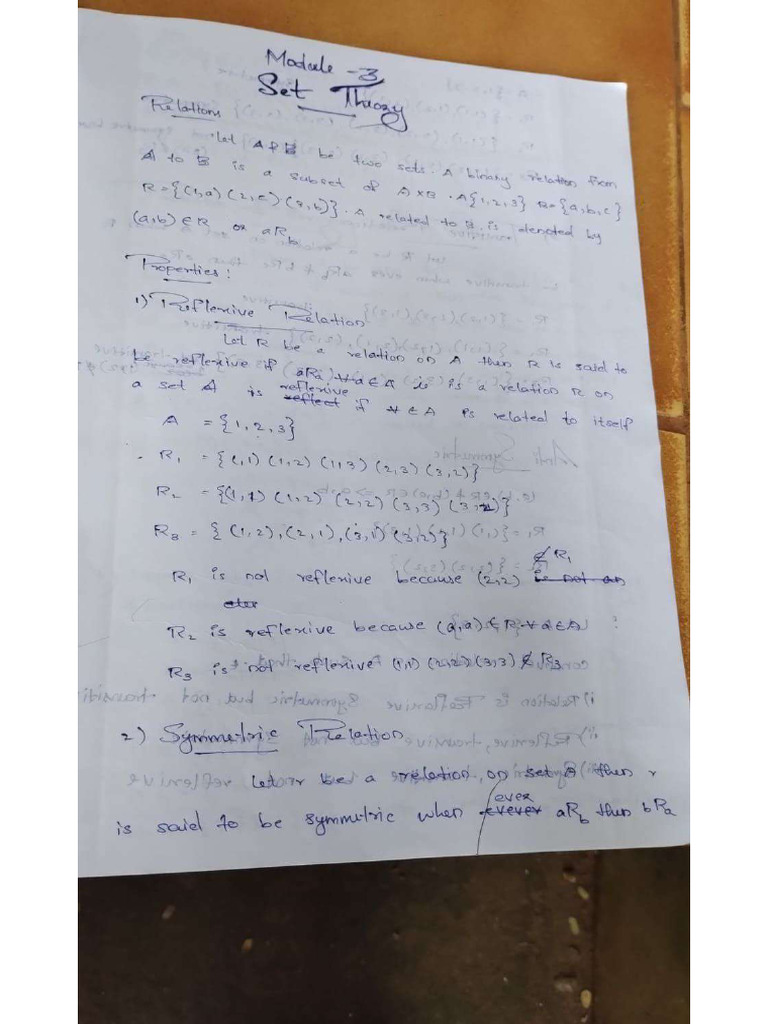 Module - 3
Set Theory
Relations
Let A & B be two sets. A binary relation from
A to B is a subset of A×B. A{1,2,3} B={a,b,c}
R={(1,a)(2,c)(2,b)}. A related to B is denoted by
(a,b)∈R or aRb
Properties:
1) Reflexive Relation
Let R be a relation on A then R is said to
be reflexive if (aRa) ∀a∈A is is a relation R on
a set A is reflexive if ∀∈A is related to itself
A = {1,2,3}
R1 = {(1,1)(1,2)(1,3)(2,3)(3,2)}
R2 = {(1,1)(1,2)(2,2)(3,3)(3,2)}
R3 = {(1,2),(2,1),(3,1)(3,2)}
R1 is not reflexive because (2,2) ∉ R1
R2 is reflexive because (a,a)∈R ∀a∈A
R3 is not reflexive (1,1)(2,2)(3,3)∉R3
2) Symmetric Relation
Let r be a relation on set A then r
is said to be symmetric when ever aRb then bRa